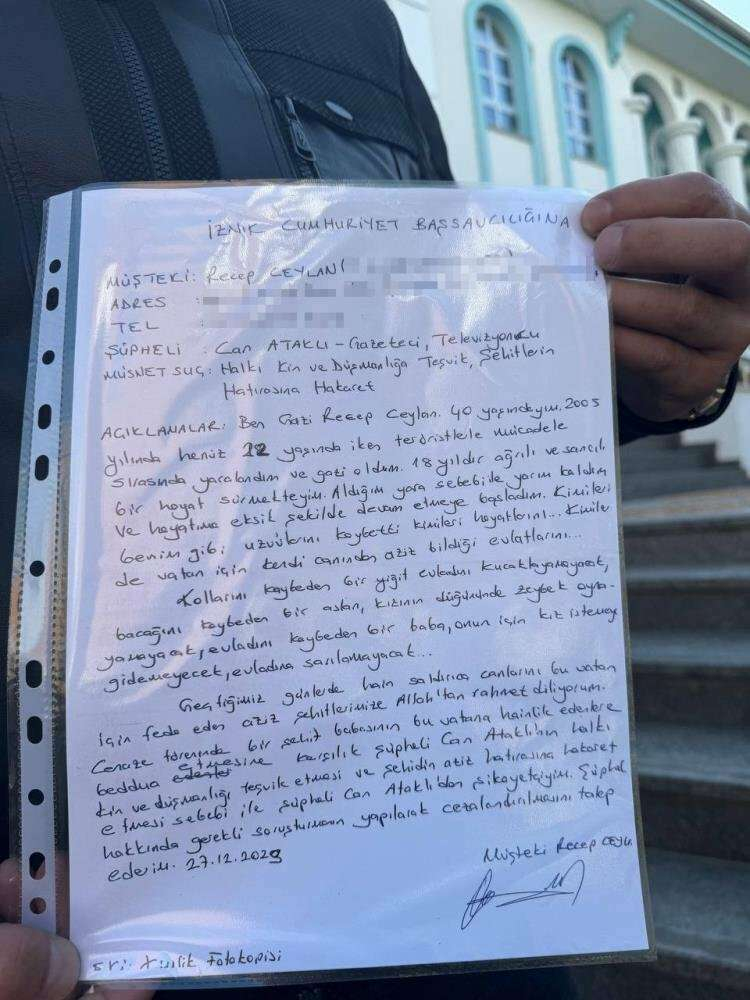 İZNİK CUMHURİYET BAŞSAVCILIĞINA
MÜŞTEKİ: Recep CEYLAN(
ADRES :
TEL :
ŞÜPHELİ : Can ATAKLI-Gazeteci, Televizyoncu
MÜSNET SUÇ: Halkı Kin ve Düşmanlığa Teşvik, Şehitlerin
Hatırasına Hakaret
AÇIKLANALAR: Ben Gazi Recep Ceylan. 40 yaşındayım. 2005
yılında henüz 22 yaşında iken teröristlerle mücadele
sırasında yaralandım ve gazi oldum. 18 yıldır ağrılı ve sancılı
bir hayat sürmekteyim. Aldığım yara sebebile yarım kaldım
ve hayatıma eksik şekilde devam etmeye başladım. Kimileri
benim gibi uzuvlarını kaybetti kimileri hayatlarını... Kimile
de vatan için kendi canından aziz bildiği evlatlarını...
Kollarını kaybeden bir yiğit evladını kucaklayamayacak,
bacağını kaybeden bir aslan, kızının düğününde zeybek oyna-
yamayacak, evladını kaybeden bir baba, onun için kız istemeye
gidemeyecek, evladına sarılamayacak...
Geçtiğimiz günlerde hain saldırıca canlarını bu vatan
için feda eden aziz şehitlerimize Allah'tan rahmet diliyorum.
Cenaze töreninde bir şehit babasının bu vatana hainlik edenlere
beddua etmesine karşılık şüpheli Can Ataklı'nın halkı
kin ve düşmanlığı teşvik etmesi ve şehidin aziz hatırasına hakaret
etmesi sebebi ile şüpheli Can Ataklı'dan şikayetçiyim. Şüphel
hakkında gerekli soruşturmanın yapılarak cezalandırılmasını talep
ederim. 27.12.2023
Müşteki Recep CEYLA
Fotokopisi